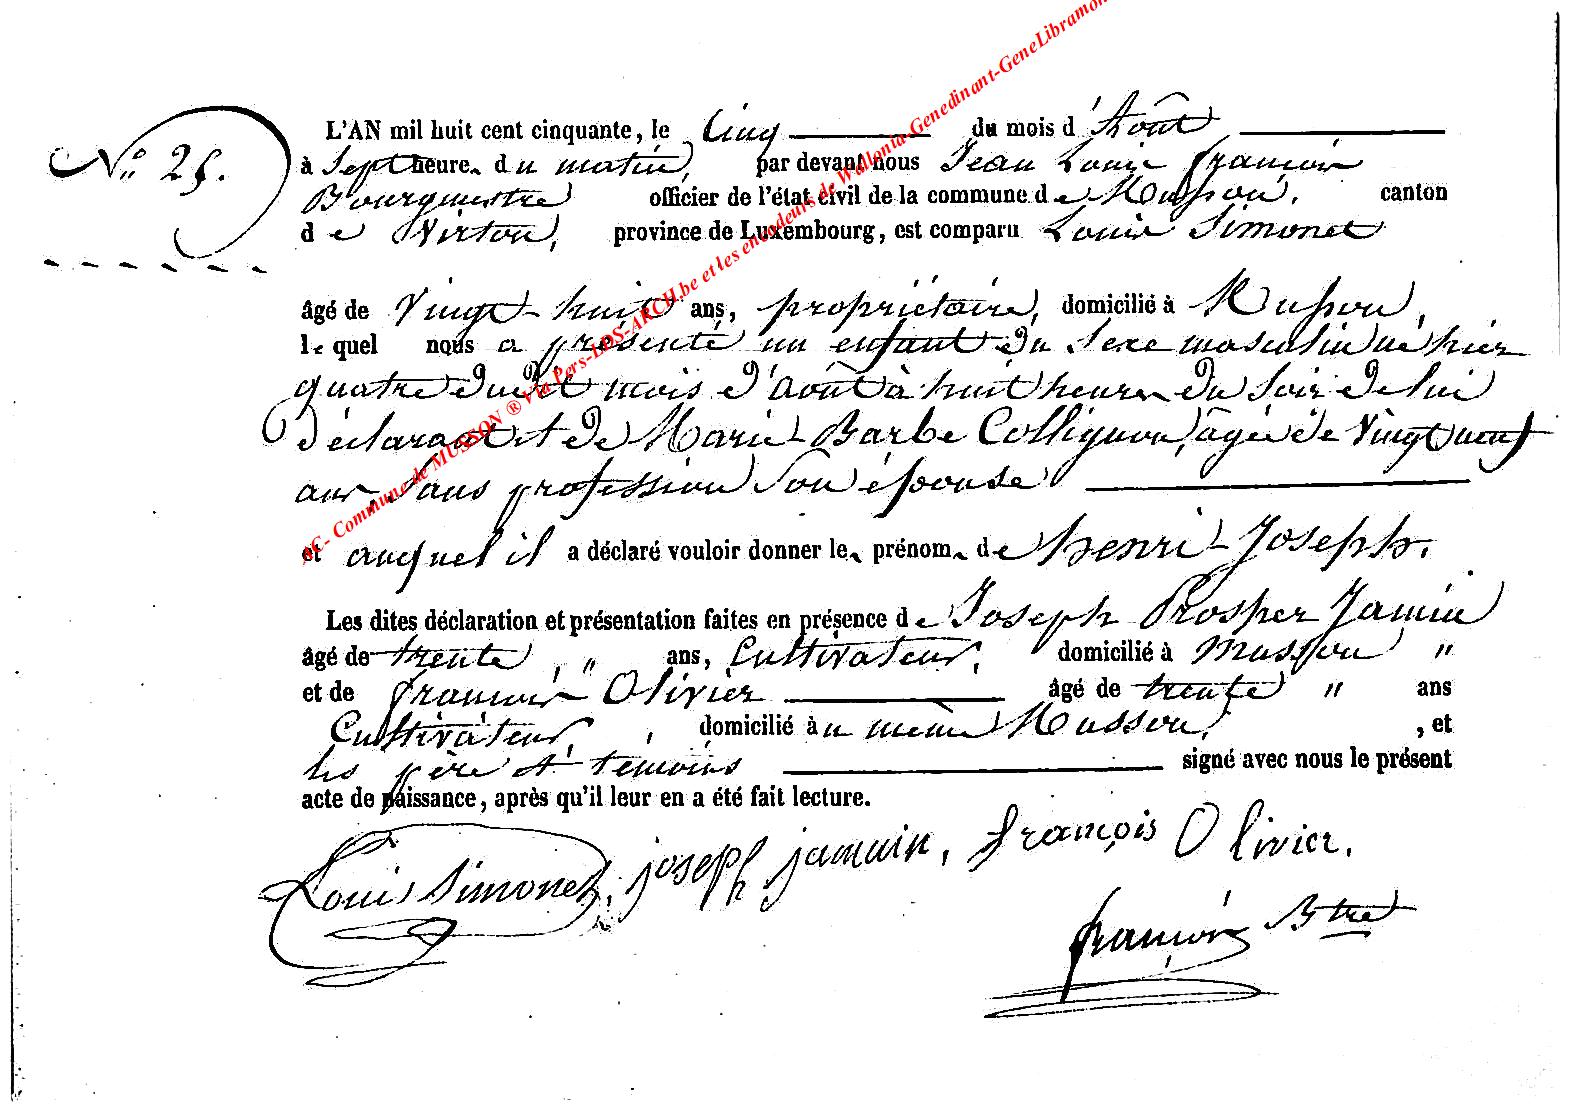 L'AN mil huit cent cinquante, le Cinq du mois d'Août
N° 25. à Sept heure du matin, par devant nous Jean Louis françois
Bourgmestre officier de l'état civil de la commune de Musson, canton
de Virton, province de Luxembourg, est comparu Louis Simonet
âgé de Vingt-huit ans, propriétaire, domicilié à Musson,
lequel nous a présenté un enfant du Sexe masculin né hier
quatre dudit mois d'août à huit heures du soir de lui
déclarant et de Marie-Barbe Collignon, âgée de Vingt neuf
ans, sans profession son épouse
et auquel il a déclaré vouloir donner les prénoms de henri-Joseph.
Les dites déclaration et présentation faites en présence de Joseph Prosper Jamin
âgé de trente, " ans, Cultivateur, domicilié à Musson "
et de françois Olivier âgé de trente " ans
Cultivateur, domicilié à même Musson, et
les père et témoins signé avec nous le présent
acte de naissance, après qu'il leur en a été fait lecture.
Louis Simonet, joseph jamin, françois Olivier.
françois Btre
AC- Commune de MUSSON ® Via Pers-LDS-ARCH.be et les encodeurs de Wallonia-Genedinant-GeneLibramon